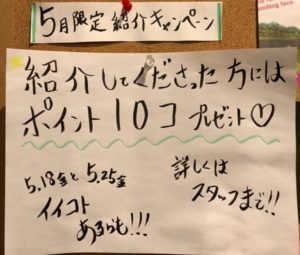 5月限定紹介キャンペーン
紹介してくださった方には
ポイント10コプレゼント♡
5,18金と5,25金
イイコト
あるかも!!!
詳しくは
スタッフまで!!